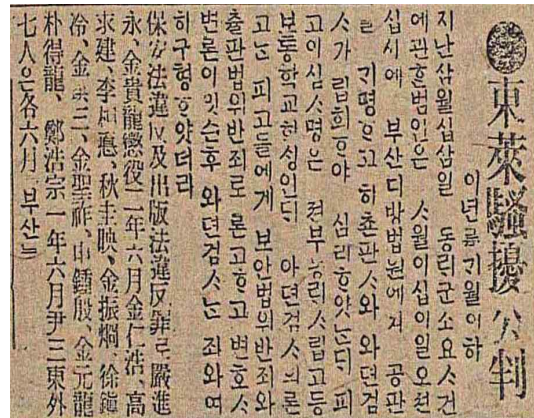 東萊騷擾公判
이년륙기월이하
지난삼월십삼일 동릭군소요사건
에관흔범인은 ᄉ월이십이일오전
십시에 부산디방법원에셔 공판
을 기명ᄒ고 히쵼판ᄉ와 와뎐검
ᄉ가 립회ᄒ야 심리ᄒ얏는ᄃᆡ 피
고이십ᄉ명은 젼부 동릭ᄉ립고등
보통학교학싱인ᄃᆡ 아뎐검ᄉ의론
고는 피고들에게 보안법위반죄와
츌판법위반죄로 론고ᄒ고 변호ᄉ
변론이잇슨후 와뎐검ᄉ는 죄와여
히구형ᄒ얏더라
保安法違反及出版法違反罪로嚴進
永、金貴龍懲役二年六月金仁浩、高
求建、李 秋圭映、金振烱、徐鎭
冷、金 三、金聖祚、申鍾殷、金元龍
朴得龍、鄭浩宗一年六月尹三東外
七人은各六月(부산)